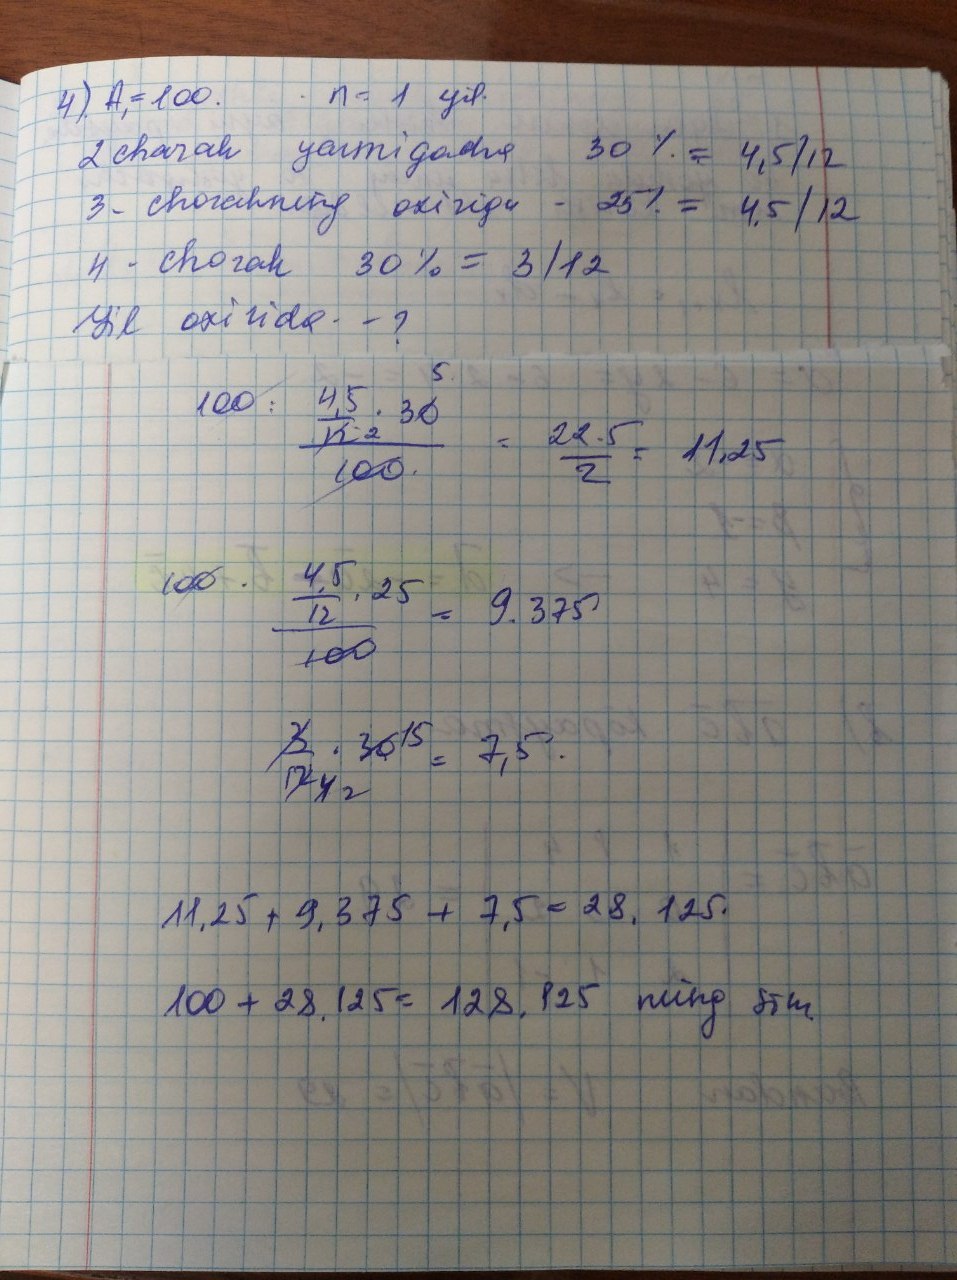 4). A₁=100. n= 1 yil.
2 charak yarmigacha 30 %. = 4,5/12
3- chorakning oxiriga - 25% = 4,5/12
4 - chorak 30% = 3/12
Yil oxirida. - ?
100 : 4,5/12 2 · 30 5 / 100. = 22.5/2 = 11.25
100 · 4,5/12 · 25 / 100 = 9.375
3/12 4 2 · 30 15 = 7,5.
11,25 + 9,375 + 7,5 = 28,125.
100 + 28,125 = 128,125 ming so'm